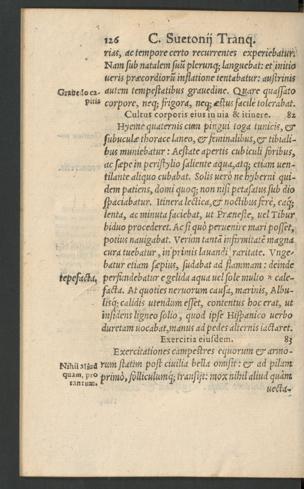 126 C. Suetonij Tranq.
rias, ac tempore certo recurrentes experiebatur.
Nam sub natalem suũ plerunq; languebat: et initio
ueris præcordiorũ inflatione tentabatur: austrinis
Grauedo ca
pitis
autem tempestatibus grauedine. Quare quassato
corpore, neq; frigora, neq; æstus facile tolerabat.
Cultus corporis eius in uia & itinere. 82
Hyeme quaternis cum pingui toga tunicis, &
subuculæ thorace laneo, & fœminalibus, & tibiali-
bus muniebatur: Aestate apertis cubiculi foribus,
ac sæpe in peristylio saliente aqua, atq; etiam uen-
tilante aliquo cubabat. Solis uerò ne hyberni qui-
dem patiens, domi quoq; non nisi petasatus sub dio
spaciabatur. Itinera lectica, & noctibus ferè, eaq;
lenta, ac minuta faciebat, ut Præneste, uel Tibur
biduo procederet. Ac si quò peruenire mari posset,
potius nauigabat. Verum tantã infirmitatẽ magna
cura tuebatur, in primis lauandi raritate. Vnge-
batur etiam sæpius, sudabat ad flammam: deinde
tepefacta,
perfundebatur egelida aqua uel sole multo cale-
facta. At quoties neruorum causa, marinis, Albu-
lisq; calidis utendum esset, contentus hoc erat, ut
insidens ligneo solio, quod ipse Hispanico uerbo
duretam uocabat, manus ad pedes alternis iactaret.
Exercitia eiusdem. 83
Exercitationes campestres equorum & armo-
Nihil aliud
quàm, pro
tantum.
rum statim post ciuilia bella omisit: & ad pilam
primò, folliculumq́; transijt: mox nihil aliud quàm
uecta-